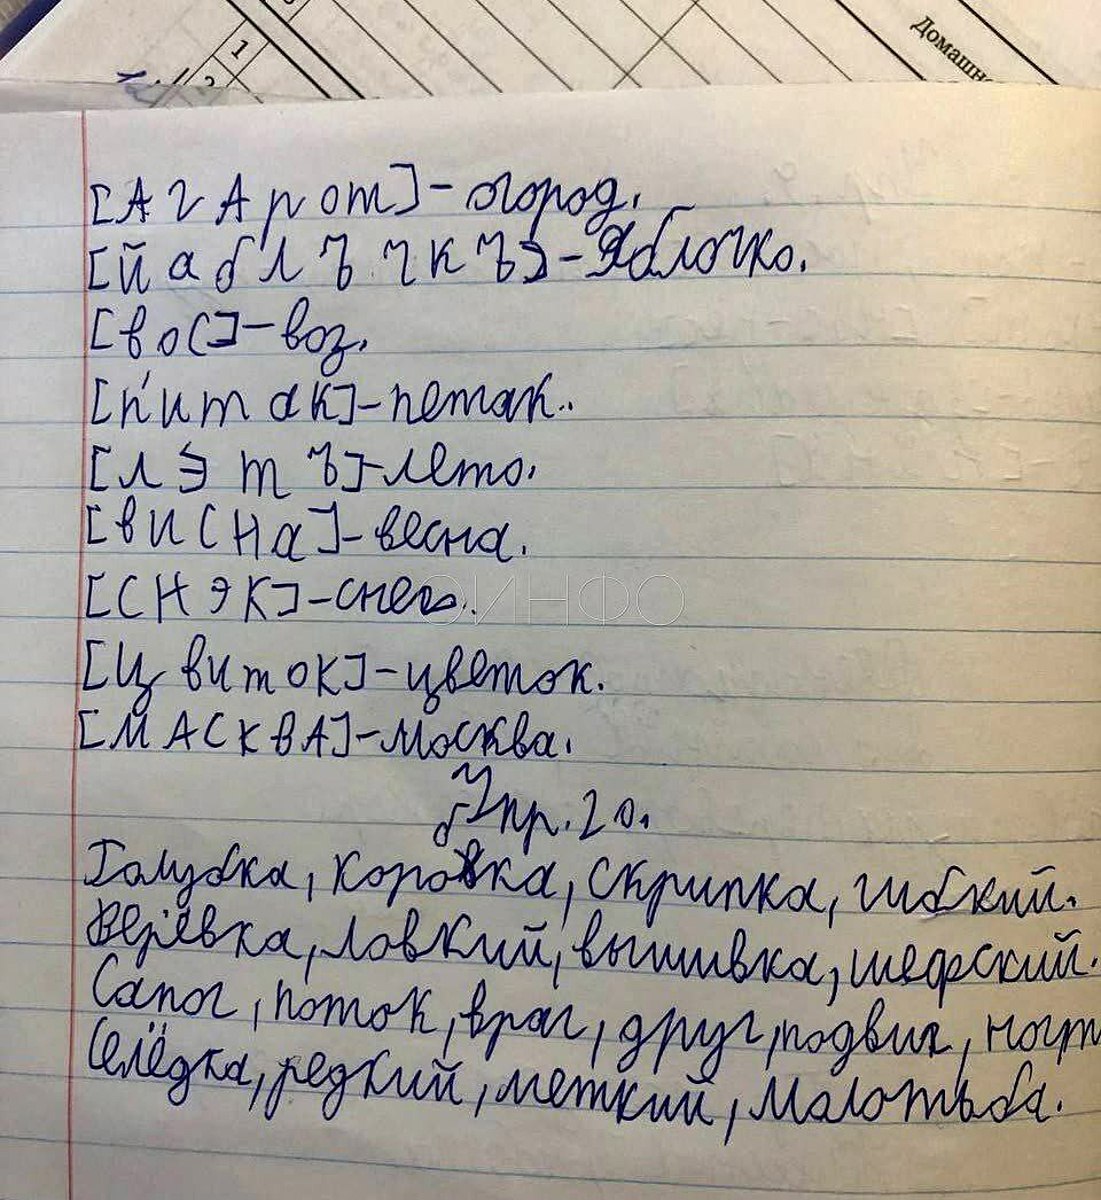 1
2
Домашн
[А г А р о т] - огород.
[й а б л ъ ч к ъ] - Яблочко.
[в о с] - воз.
[п' и т а к] - петак.
[л э т ъ] - лето.
[в и с н а] - весна.
[с н э к] - снег.
ОИНФО
[ц в и т о к] - цветок.
[М А С К В А] - Москва.
Упр. 20.
Голубка, коровка, скрипка, гибкий.
верёвка, ловкий, вышивка, шефский.
Сапог, поток, враг, друг, подвиг, ногт
Селёдка, редкий, меткий, малотьба.